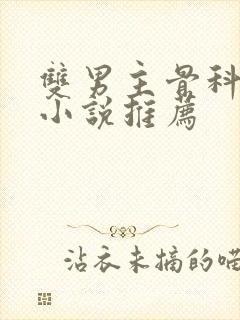 雙男主骨科
小說推薦
沾衣未摘的喵